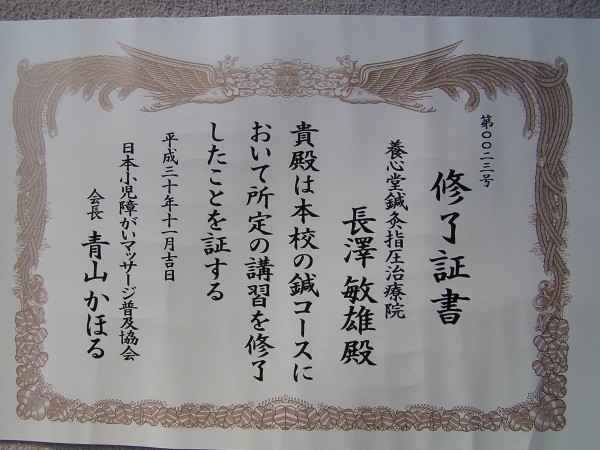 第〇〇二三号
修了証書
養心堂鍼灸指圧治療院
長澤敏雄殿
貴殿は本校の鍼コースに
おいて所定の講習を修了
したことを証する
平成三十年十一月吉日
日本小児障がいマッサージ普及協会
会長 青山かほる